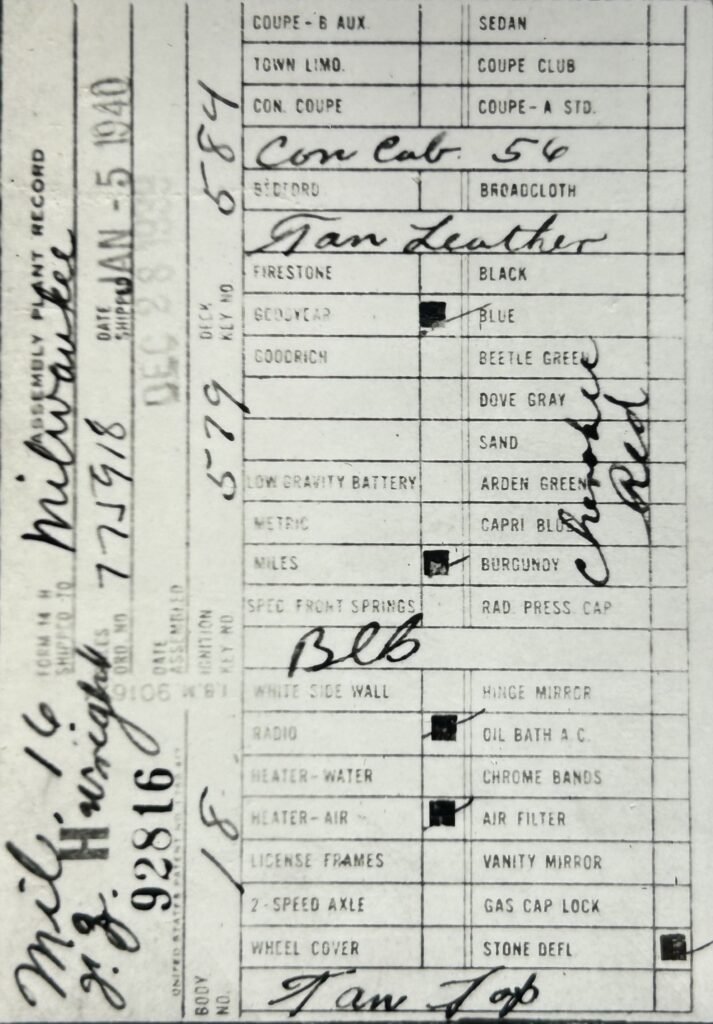 FORM 14 H ASSEMBLY PLANT RECORD
SHIPPED TO Milwaukee
ORD. NO 775918 DATE SHIPPED JAN - 5 1940
DATE ASSEMBLED DEC 28 1939
IGNITION KEY NO 579 DECK KEY NO. 584
Mil. 16
H Wright
92816
BODY NO. 18
I.B.M. 9016
COUPE - B AUX. SEDAN
TOWN LIMO. COUPE CLUB
CON. COUPE COUPE - A STD.
Con Cab. 56
BEDFORD BROADCLOTH
Tan Leather
FIRESTONE BLACK
GOODYEAR BLUE
GOODRICH BEETLE GREEN
DOVE GRAY
SAND
LOW GRAVITY BATTERY ARDEN GREEN
METRIC CAPRI BLUE
MILES BURGUNDY
Cherokee Red
SPEC. FRONT SPRINGS RAD. PRESS. CAP
WHITE SIDE WALL HINGE MIRROR
RADIO OIL BATH A.C.
HEATER-WATER CHROME BANDS
HEATER-AIR AIR FILTER
LICENSE FRAMES VANITY MIRROR
2-SPEED AXLE GAS CAP LOCK
WHEEL COVER STONE DEFL.
Tan Top